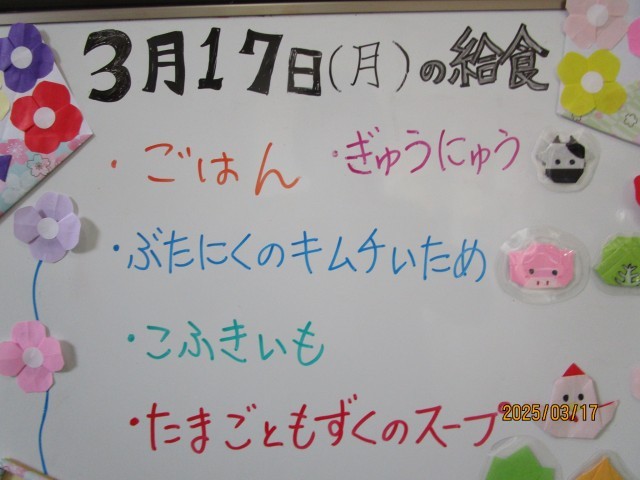 3月17日(月)の給食
・ごはん ・ぎゅうにゅう
・ぶたにくのキムチいため
・こふきいも
・たまごともずくのスープ
2025/03/17